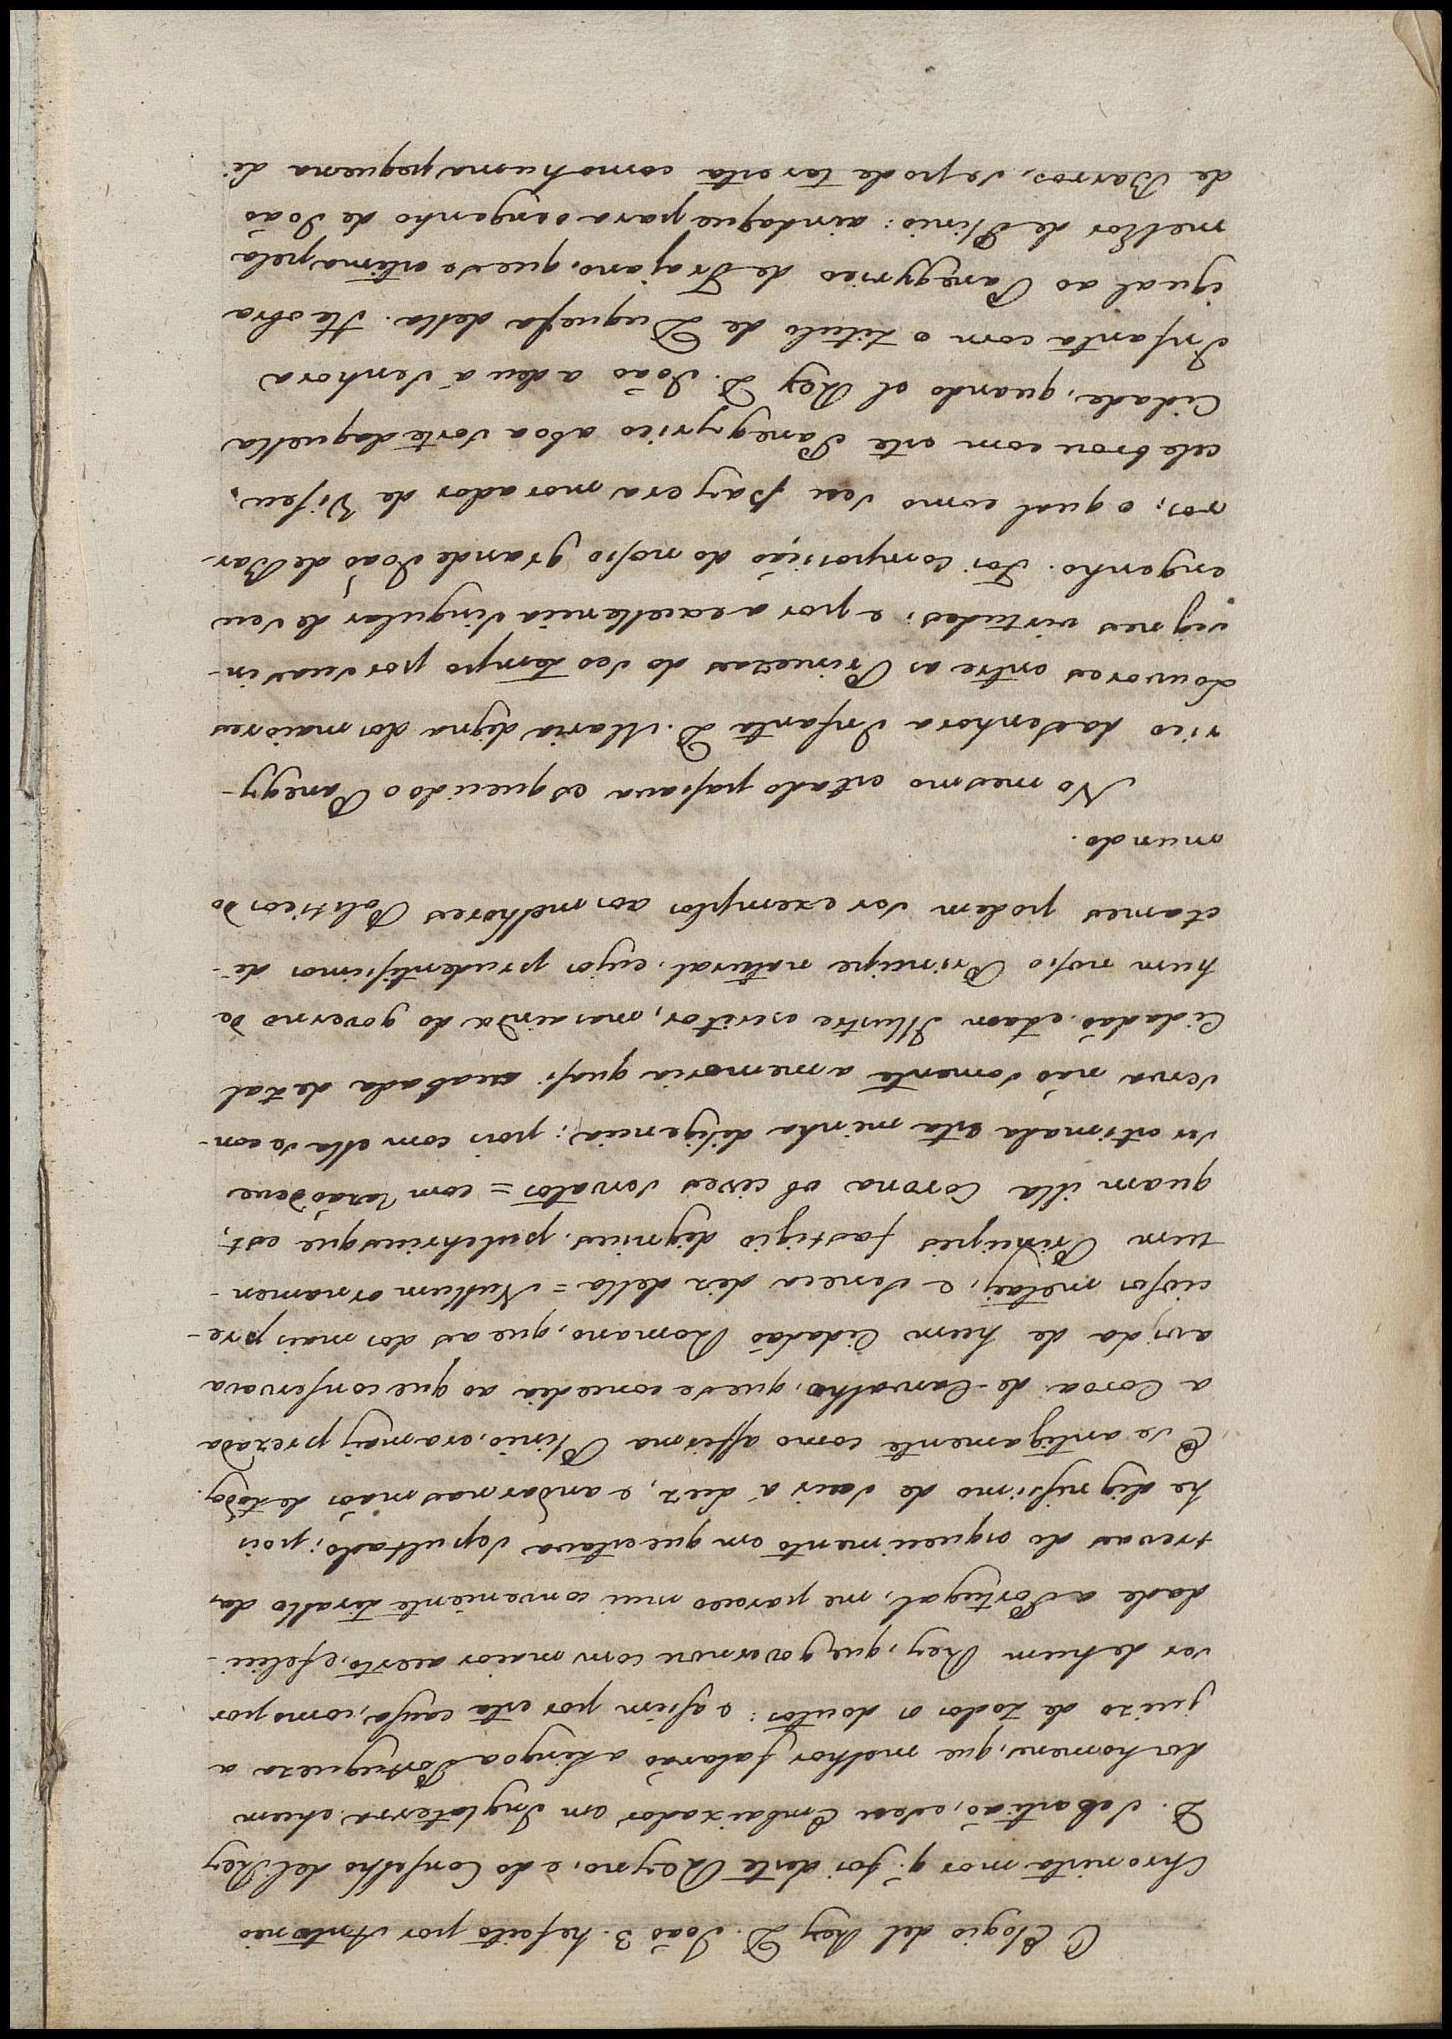 O Elogio del Rey D. João 3. he feito por Antonio
Chronista mor q̃ foi deste Reyno, e do Conselho del Rey
D. Sebastião, e seu Embaixador em Inglaterra, e hum
dos homens, que melhor falarão a lingoa Portugueza a
juizo de todos os doutos: e assim por esta causa, como por
ser de hum Rey, que governou com maior acerto, e felici-
dade a Portugal, me pareceo mui conveniente tiralo das
trevas do esquecimento em que estava sepultado; pois
he dignissimo de sair á luz, e andar nas mãos de todos.
E se antigamente como affirma Plinio, era mais prezada
a Coroa de Carvalho, que se concedia ao que conservava
a vida de hum Cidadão Romano, que as dos mais pre-
ciosos metais; e Seneca diz della = Nullum ornamen-
tum Principis fastigio dignius, pulchriusque est,
quam illa Corona ob cives servatos = com razão deve
ser estimada esta minha diligencia; pois com ella se con-
serva não somente a memoria quasi acabada de tal
Cidadão, e taom Illustre escritor, mas ainda do governo de
hum nosso Principe natural, cujos prudentissimos di-
ctames podem ser exemplos aos melhores Politicos do
mundo.
No mesmo estado passava esquecido o Panegy-
rico da Senhora Infanta D. Maria digna dos maiores
Louvores entre as Princezas do seo tempo por suas in-
signes virtudes, e por a excellencia singular de seu
engenho. Foi composição do nosso grande João de Bar-
ros, o qual como seu pay era morador de Viseu,
celebrou com este Panegyrico aboa sorte daquella
Cidade, quando el Rey D. João a deu á Senhora
Infanta com o titulo de Duquesa della. He obra
igual ao Panegyrico de Trajano, que se estima pela
melhor de Plinio: ainda que para o engenho de João
de Barros, se pode ter esta como huma pequena di-